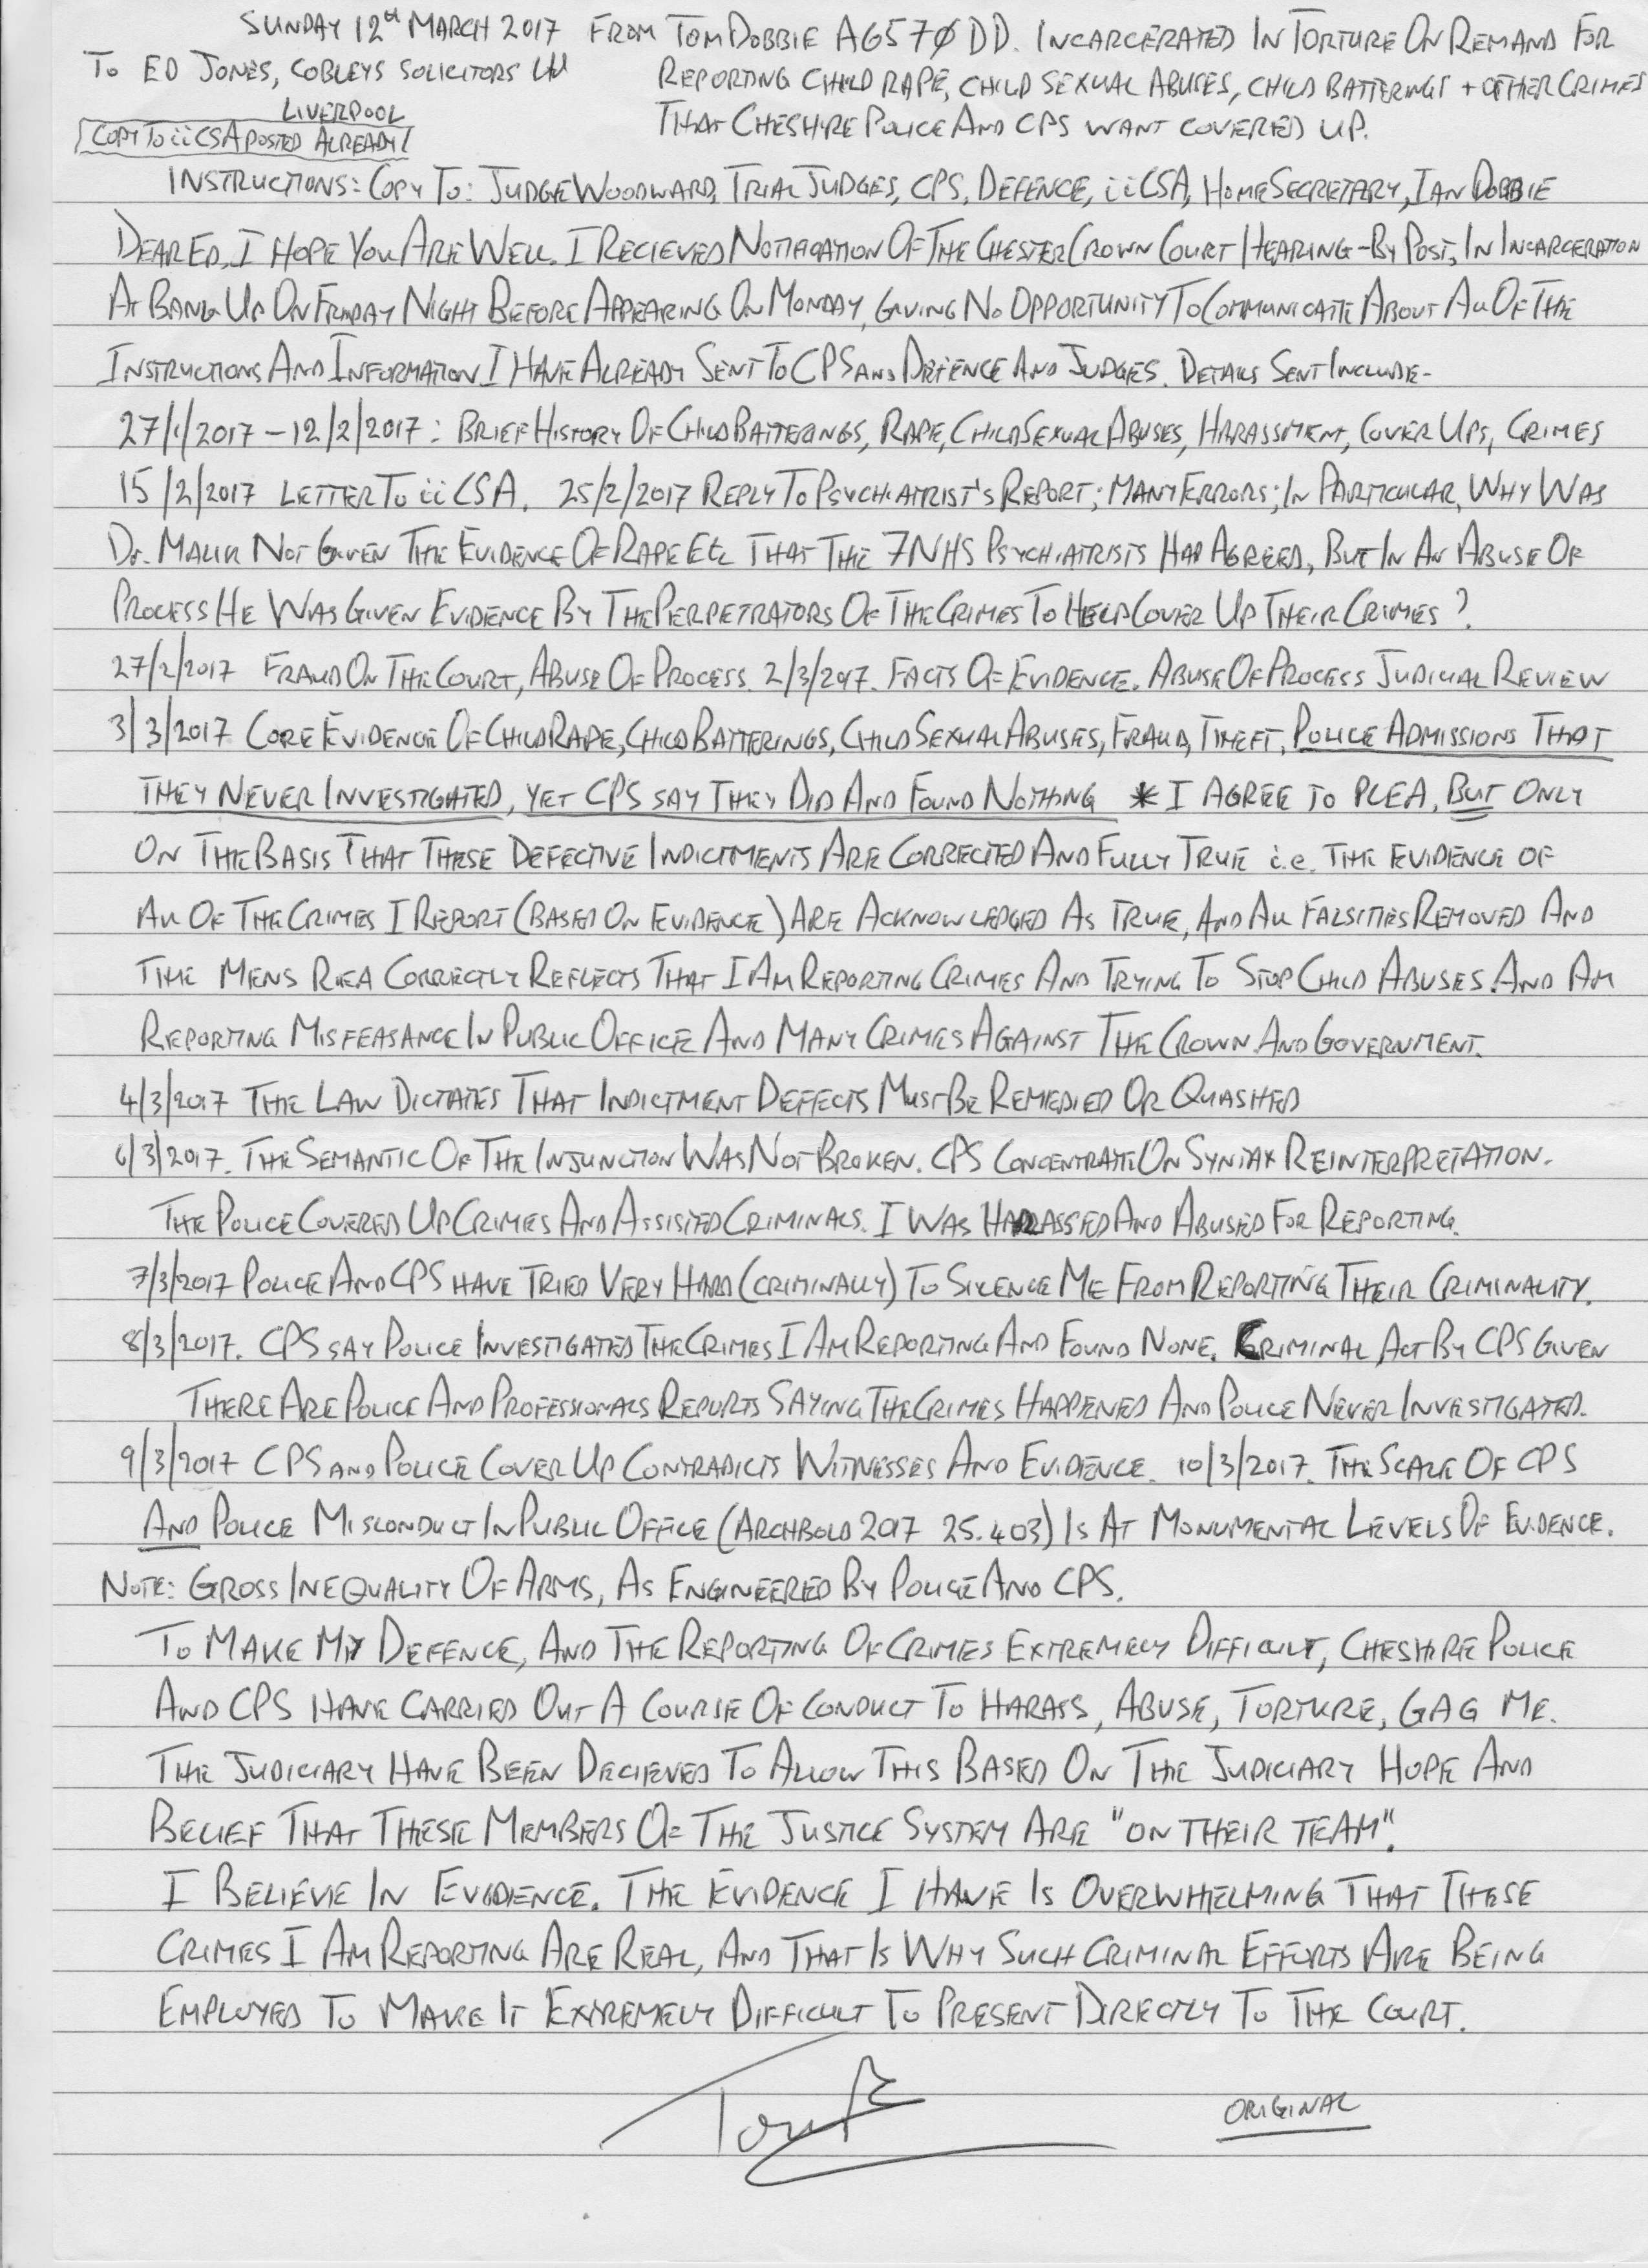 SUNDAY 12th MARCH 2017 FROM TOM DOBBIE A6570DD. INCARCERATED IN TORTURE ON REMAND FOR
TO ED JONES, COBLEYS SOLICITORS Ltd REPORTING CHILD RAPE, CHILD SEXUAL ABUSES, CHILD BATTERINGS + OTHER CRIMES
LIVERPOOL THAT CHESHIRE POLICE AND CPS WANT COVERED UP.
COPY TO iiCSA POSTED ALREADY
INSTRUCTIONS: COPY TO: JUDGE WOODWARD, TRIAL JUDGES, CPS, DEFENCE, iiCSA, HOME SECRETARY, IAN DOBBIE
DEAR ED, I HOPE YOU ARE WELL. I RECIEVED NOTIFICATION OF THE CHESTER CROWN COURT HEARING - BY POST, IN INCARCERATION
AT BANG UP ON FRIDAY NIGHT BEFORE APPEARING ON MONDAY, GIVING NO OPPORTUNITY TO COMMUNICATE ABOUT ALL OF THE
INSTRUCTIONS AND INFORMATION I HAVE ALREADY SENT TO CPS AND DEFENCE AND JUDGES. DETAILS SENT INCLUDE-
27/1/2017 - 12/2/2017: BRIEF HISTORY OF CHILD BATTERINGS, RAPE, CHILD SEXUAL ABUSES, HARASSMENT, COVER UPS, CRIMES
15/2/2017 LETTER TO iiCSA. 25/2/2017 REPLY TO PSYCHIATRIST'S REPORT; MANY ERRORS; IN PARTICULAR, WHY WAS
Dr. MALIK NOT GIVEN THE EVIDENCE OF RAPE Etc THAT THE 7 NHS PSYCHIATRISTS HAD AGREED, BUT IN AN ABUSE OF
PROCESS HE WAS GIVEN EVIDENCE BY THE PERPETRATORS OF THE CRIMES TO HELP COVER UP THEIR CRIMES?
27/2/2017 FRAUD ON THE COURT, ABUSE OF PROCESS. 2/3/2017. FACTS OF EVIDENCE. ABUSE OF PROCESS JUDICIAL REVIEW
3/3/2017 CORE EVIDENCE OF CHILD RAPE, CHILD BATTERINGS, CHILD SEXUAL ABUSES, FRAUD, THEFT, POLICE ADMISSIONS THAT
THEY NEVER INVESTIGATED, YET CPS SAY THEY DID AND FOUND NOTHING * I AGREE TO PLEA, BUT ONLY
ON THE BASIS THAT THESE DEFECTIVE INDICTMENTS ARE CORRECTED AND FULLY TRUE i.e. THE EVIDENCE OF
ALL OF THE CRIMES I REPORT (BASED ON EVIDENCE) ARE ACKNOWLEDGED AS TRUE, AND ALL FALSITIES REMOVED AND
THE MENS REA CORRECTLY REFLECTS THAT I AM REPORTING CRIMES AND TRYING TO STOP CHILD ABUSES. AND AM
REPORTING MISFEASANCE IN PUBLIC OFFICE AND MANY CRIMES AGAINST THE CROWN AND GOVERNMENT.
4/3/2017 THE LAW DICTATES THAT INDICTMENT DEFECTS MUST BE REMEDIED OR QUASHED
6/3/2017. THE SEMANTIC OF THE INJUNCTION WAS NOT BROKEN. CPS CONCENTRATE ON SYNTAX REINTERPRETATION.
THE POLICE COVERED UP CRIMES AND ASSISTED CRIMINALS. I WAS HARASSED AND ABUSED FOR REPORTING.
7/3/2017 POLICE AND CPS HAVE TRIED VERY HARD (CRIMINALLY) TO SILENCE ME FROM REPORTING THEIR CRIMINALITY.
8/3/2017. CPS SAY POLICE INVESTIGATED THE CRIMES I AM REPORTING AND FOUND NONE. CRIMINAL ACT BY CPS GIVEN
THERE ARE POLICE AND PROFESSIONALS REPORTS SAYING THE CRIMES HAPPENED AND POLICE NEVER INVESTIGATED.
9/3/2017 CPS AND POLICE COVER UP CONTRADICTS WITNESSES AND EVIDENCE. 10/3/2017. THE SCALE OF CPS
AND POLICE MISCONDUCT IN PUBLIC OFFICE (ARCHBOLD 2017 25.403) IS AT MONUMENTAL LEVELS OF EVIDENCE.
NOTE: GROSS INEQUALITY OF ARMS, AS ENGINEERED BY POLICE AND CPS.
TO MAKE MY DEFENCE, AND THE REPORTING OF CRIMES EXTREMELY DIFFICULT, CHESHIRE POLICE
AND CPS HAVE CARRIED OUT A COURSE OF CONDUCT TO HARASS, ABUSE, TORTURE, GAG ME.
THE JUDICIARY HAVE BEEN DECIEVED TO ALLOW THIS BASED ON THE JUDICIARY HOPE AND
BELIEF THAT THESE MEMBERS OF THE JUSTICE SYSTEM ARE "ON THEIR TEAM".
I BELIEVE IN EVIDENCE. THE EVIDENCE I HAVE IS OVERWHELMING THAT THESE
CRIMES I AM REPORTING ARE REAL, AND THAT IS WHY SUCH CRIMINAL EFFORTS ARE BEING
EMPLOYED TO MAKE IT EXTREMELY DIFFICULT TO PRESENT DIRECTLY TO THE COURT.
ORIGINAL